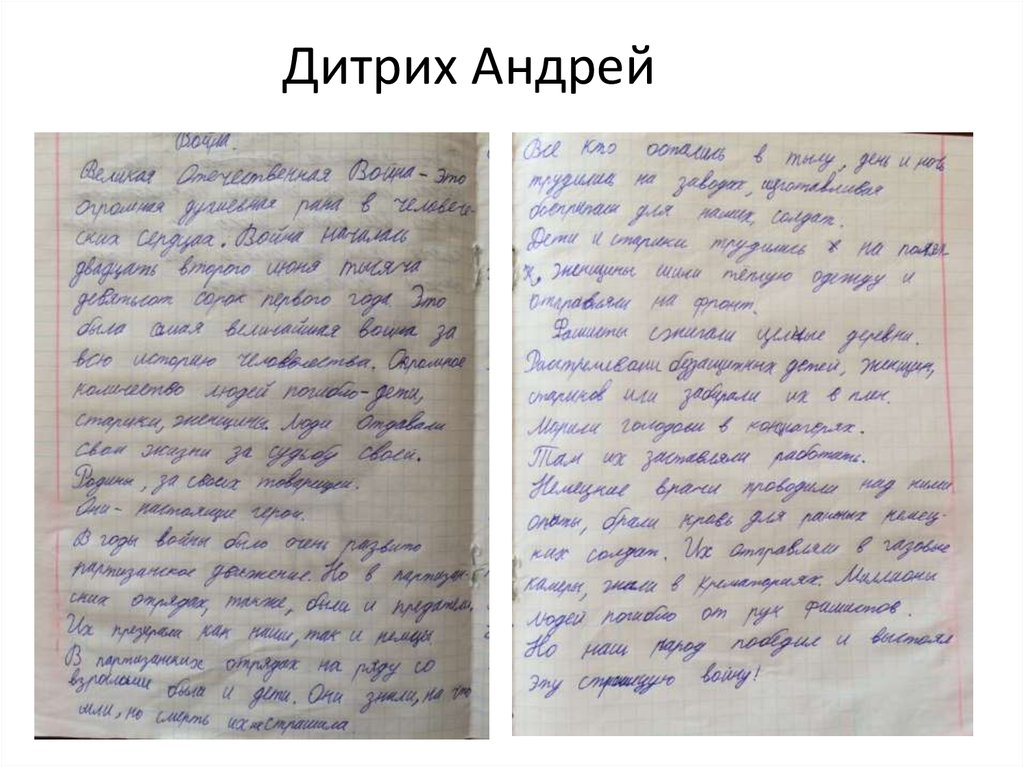 Дитрих Андрей
Война.
Великая Отечественная Война - это
огромная душевная рана в человече-
ских сердцах. Война началась
двадцать второго июня тысяча
девятьсот сорок первого года. Это
была самая величайшая война за
всю историю человечества. Огромное
количество людей погибло - дети,
старики, женщины. Люди отдавали
свои жизни за судьбу своей.
Родины, за своих товарищей.
Они - настоящие герои.
В годы войны было очень развито
партизанское движение. Но в партизан-
ских отрядах, также, были и предатели.
Их презерали как наши, так и немцы.
В партизанских отрядах на ряду со
взрослыми была и дети. Они знали, на что
шли, но смерть их не страшила.
Все кто остались в тылу, день и ночь
трудились на заводах, изготавливая
боеприпасы для наших солдат.
Дети и старики трудились на полях
женщины шили тёплую одежду и
отправляли на фронт.
Фашисты сжигали целые деревни.
Расстреливали беззащитных детей, женщин,
стариков или забирали их в плен.
Морили голодом в концлагерях.
Там их заставляли работать.
Немецкие врачи проводили над ними
опыты, брали кровь для раных немец-
ких солдат. Их отправляли в газовые
камеры, жгли в крематориях. Миллионы
людей погибло от рук фашистов.
Но наш народ победил и выстоял
эту страшную войну!